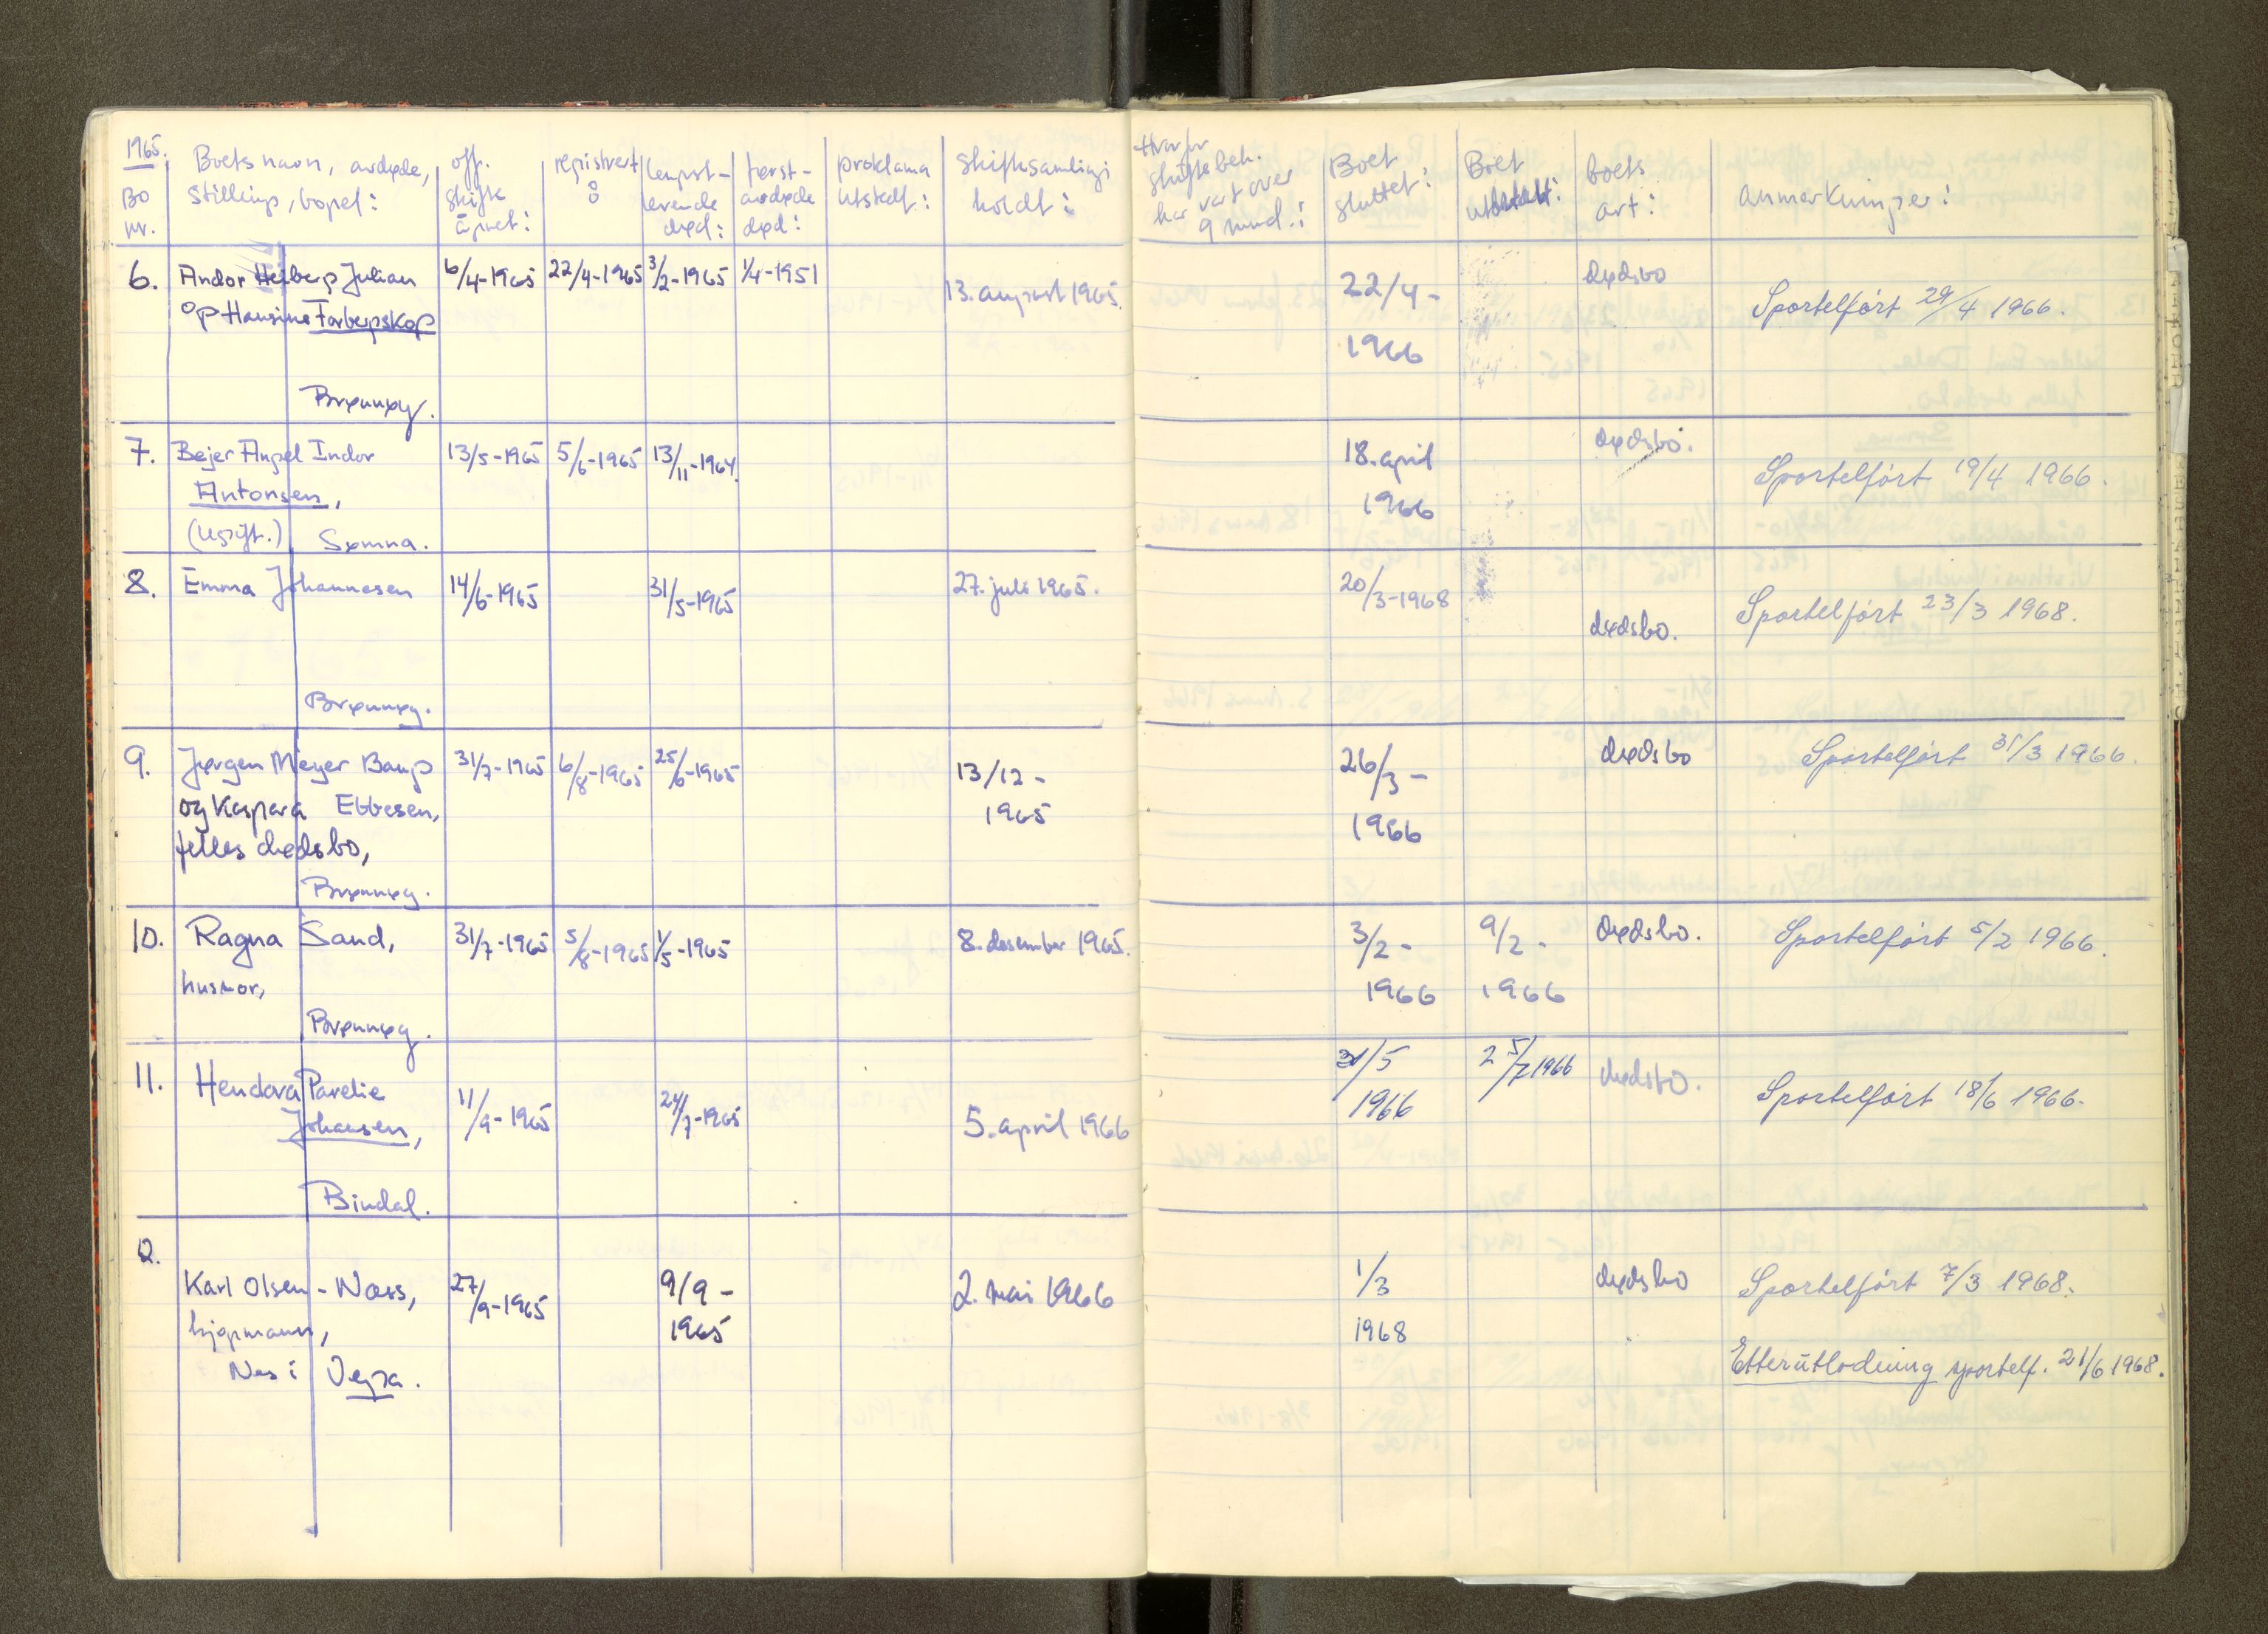 1965.
Bo
nr.
Boets navn, avdøde,
Stilling, bopel:
off.
skifte
åpnet:
registrert
lengst-
levende
død:
først-
avdøde
død:
proklama
utstedt:
skiftesamling
holdt:
Hvorfor
skiftebeh.
har vart over
9 mnd.:
Boet
sluttet:
Boet
utbetalt:
boets
art:
anmerkninger:
6. Andor Heiberg Julian 6/4-1965 22/4-1965 3/2-1965 1/4-1951 13. august 1965. 22/4- dødsbo Sportelført 29/4 1966.
og Hansine Torbergskog 1966
Brønnøy.
7. Bejer Angel Indor 13/5-1965 5/6-1965 13/11-1964. 18. april dødsbo. Sportelført 19/4 1966.
Antonsen, 1966
(ugift.) Sømna.
8. Emma Johannesen 14/6-1965 31/5-1965 27. juli 1965. 20/3-1968 dødsbo. Sportelført 23/3 1968.
Brønnøy.
9. Jørgen Meyer Baug 31/7-1965 6/8-1965 25/6-1965 13/12- 26/3- dødsbo Sportelført 31/3 1966.
og Kaspara Ebbesen, 1965 1966
felles dødsbo,
Brønnøy.
10. Ragna Sand, 31/7-1965 5/8-1965 1/5-1965 8. desember 1965. 3/2- 9/2- dødsbo. Sportelført 5/2 1966.
husmor, 1966 1966
Brønnøy.
11. Hendora Parelie 11/9-1965 24/7-1965 5. april 1966 /5 2 5/7 1966 dødsbo. Sportelført 18/6 1966.
Johansen, 1966
Bindal.
Karl Olsen-Næss, 27/9-1965 9/9- 2. mai 1966 1/3 dødsbo Sportelført 7/3 1968.
kjøpmann, 1965 1968
Nes i Vega. Etterutlodning sportelf. 21/6 1968.